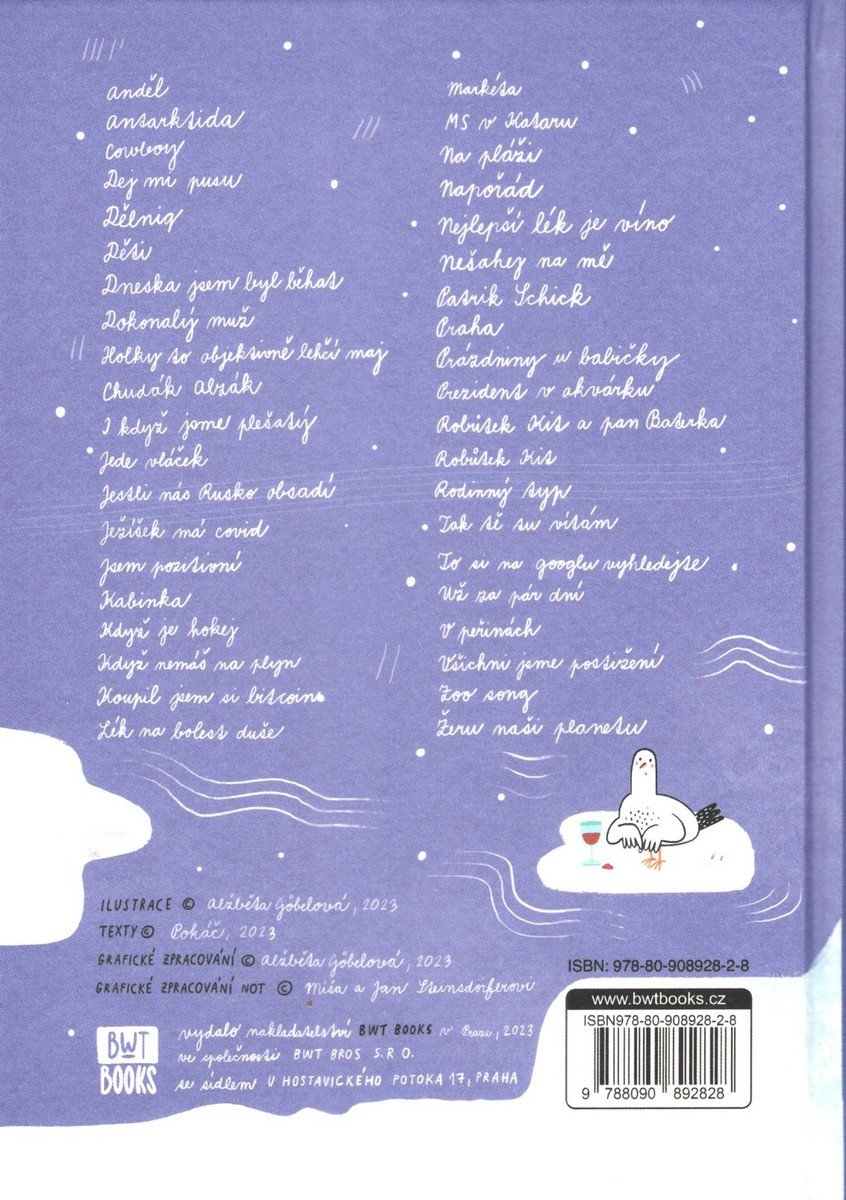 Anděl
Antarktida
Cowboy
Dej mi pusu
Dělnig
Děti
Dneska jsem byl běhat
Dokonalý muž
Holky to objektivně lehčí maj
Chudák Alzák
I když jsme plešatý
Jede vláček
Jestli nás Rusko obsadí
Ježíšek má covid
Jsem pozitivní
Kabinka
Když je hokej
Když nemáš na plyn
Koupil jsem si bitcoin
Lék na bolest duše
Markéta
MS v Kataru
Na pláži
Napořád
Nejlepší lék je víno
Nešahej na mě
Patrik Schick
Praha
Prázdniny u babičky
Prezident v akvárku
Robůtek Kit a pan Baterka
Robůtek Kit
Rodinný typ
Tak tě tu vítám
To si na googlu vyhledejte
Už za pár dní
V peřinách
Všichni jsme postižení
Zoo song
Žeru naši planetu
ILUSTRACE © Alžběta Göbelová, 2023
TEXTY © Pokáč, 2023
GRAFICKÉ ZPRACOVÁNÍ © Alžběta Göbelová, 2023
GRAFICKÉ ZPRACOVÁNÍ NOT © Míša a Jan Steinsdörferovi
BWT
BOOKS
vydalo nakladatelství BWT BOOKS v Praze, 2023
ve společnosti BWT BROS S.R.O.
se sídlem U HOSTAVICKÉHO POTOKA 17, PRAHA
ISBN: 978-80-908928-2-8
www.bwtbooks.cz
ISBN978-80-908928-2-8
9 788090 892828